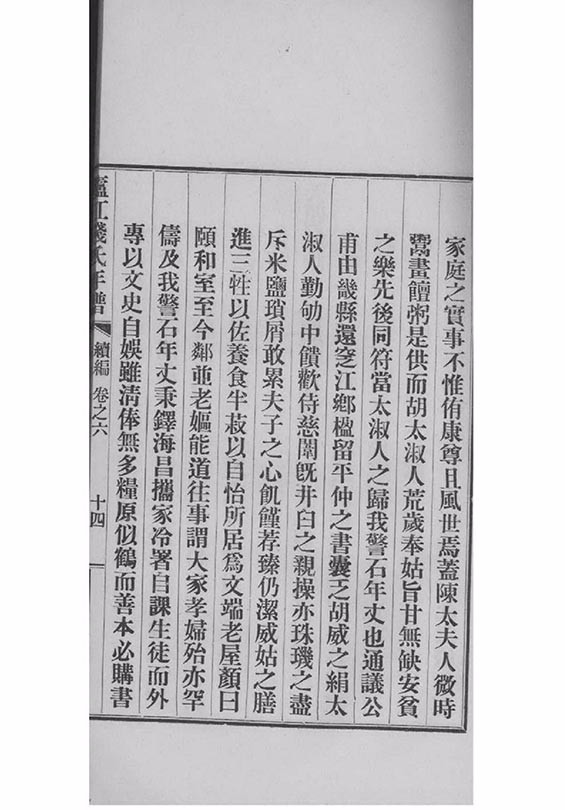 家庭之實事不惟侑康尊且風世焉蓋陳太夫人微時
鬻畫饘粥是供而胡太淑人荒歲奉姑旨甘無缺安貧
之樂先後同符當太淑人之歸我警石年丈也通議公
甫由畿縣還窆江鄉楹留平仲之書囊乏胡威之絹太
淑人勤劬中饋歡侍慈闈旣井臼之親操亦珠璣之盡
斥米鹽瑣屑敢累夫子之心飢饉荐臻仍潔威姑之膳
進三牲以佐養食半菽以自怡所居爲文端老屋顏曰
頤和室至今鄰亜老嫗能道往事謂大家孝婦殆亦罕
儔及我警石年丈秉鐸海昌攜家冷署自課生徒而外
專以文史自娛雖淸俸無多糧原似鶴而善本必購書
廬江錢氏年譜 續編 卷之六 十四